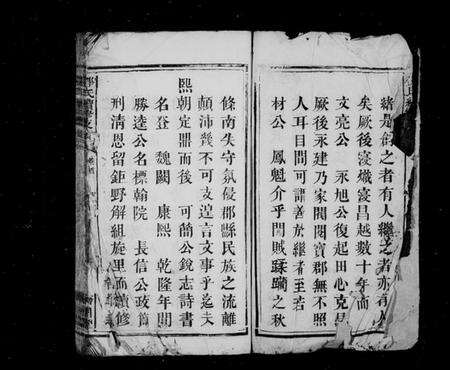 緒是創之者有人繼之者亦有人
矣厥後寖熾寖昌越數十年而
文亮公 永旭公復起田心克
厥後永建乃家閥閱寶郡無不照
人耳目間可謂善於繼者至若
材公 鳳魁介乎閩賊蹂躪之秋
條南失守氛侵郡縣民族之流離
顛沛幾不可支遑言文事乎迨夫
熙
朝定鼎而後 可簡公銳志詩書
名登 魏闕 康熙 乾隆年間
勝逵公名標翰院 長信公政首
刑清恩留鉅野解組旋里而續修